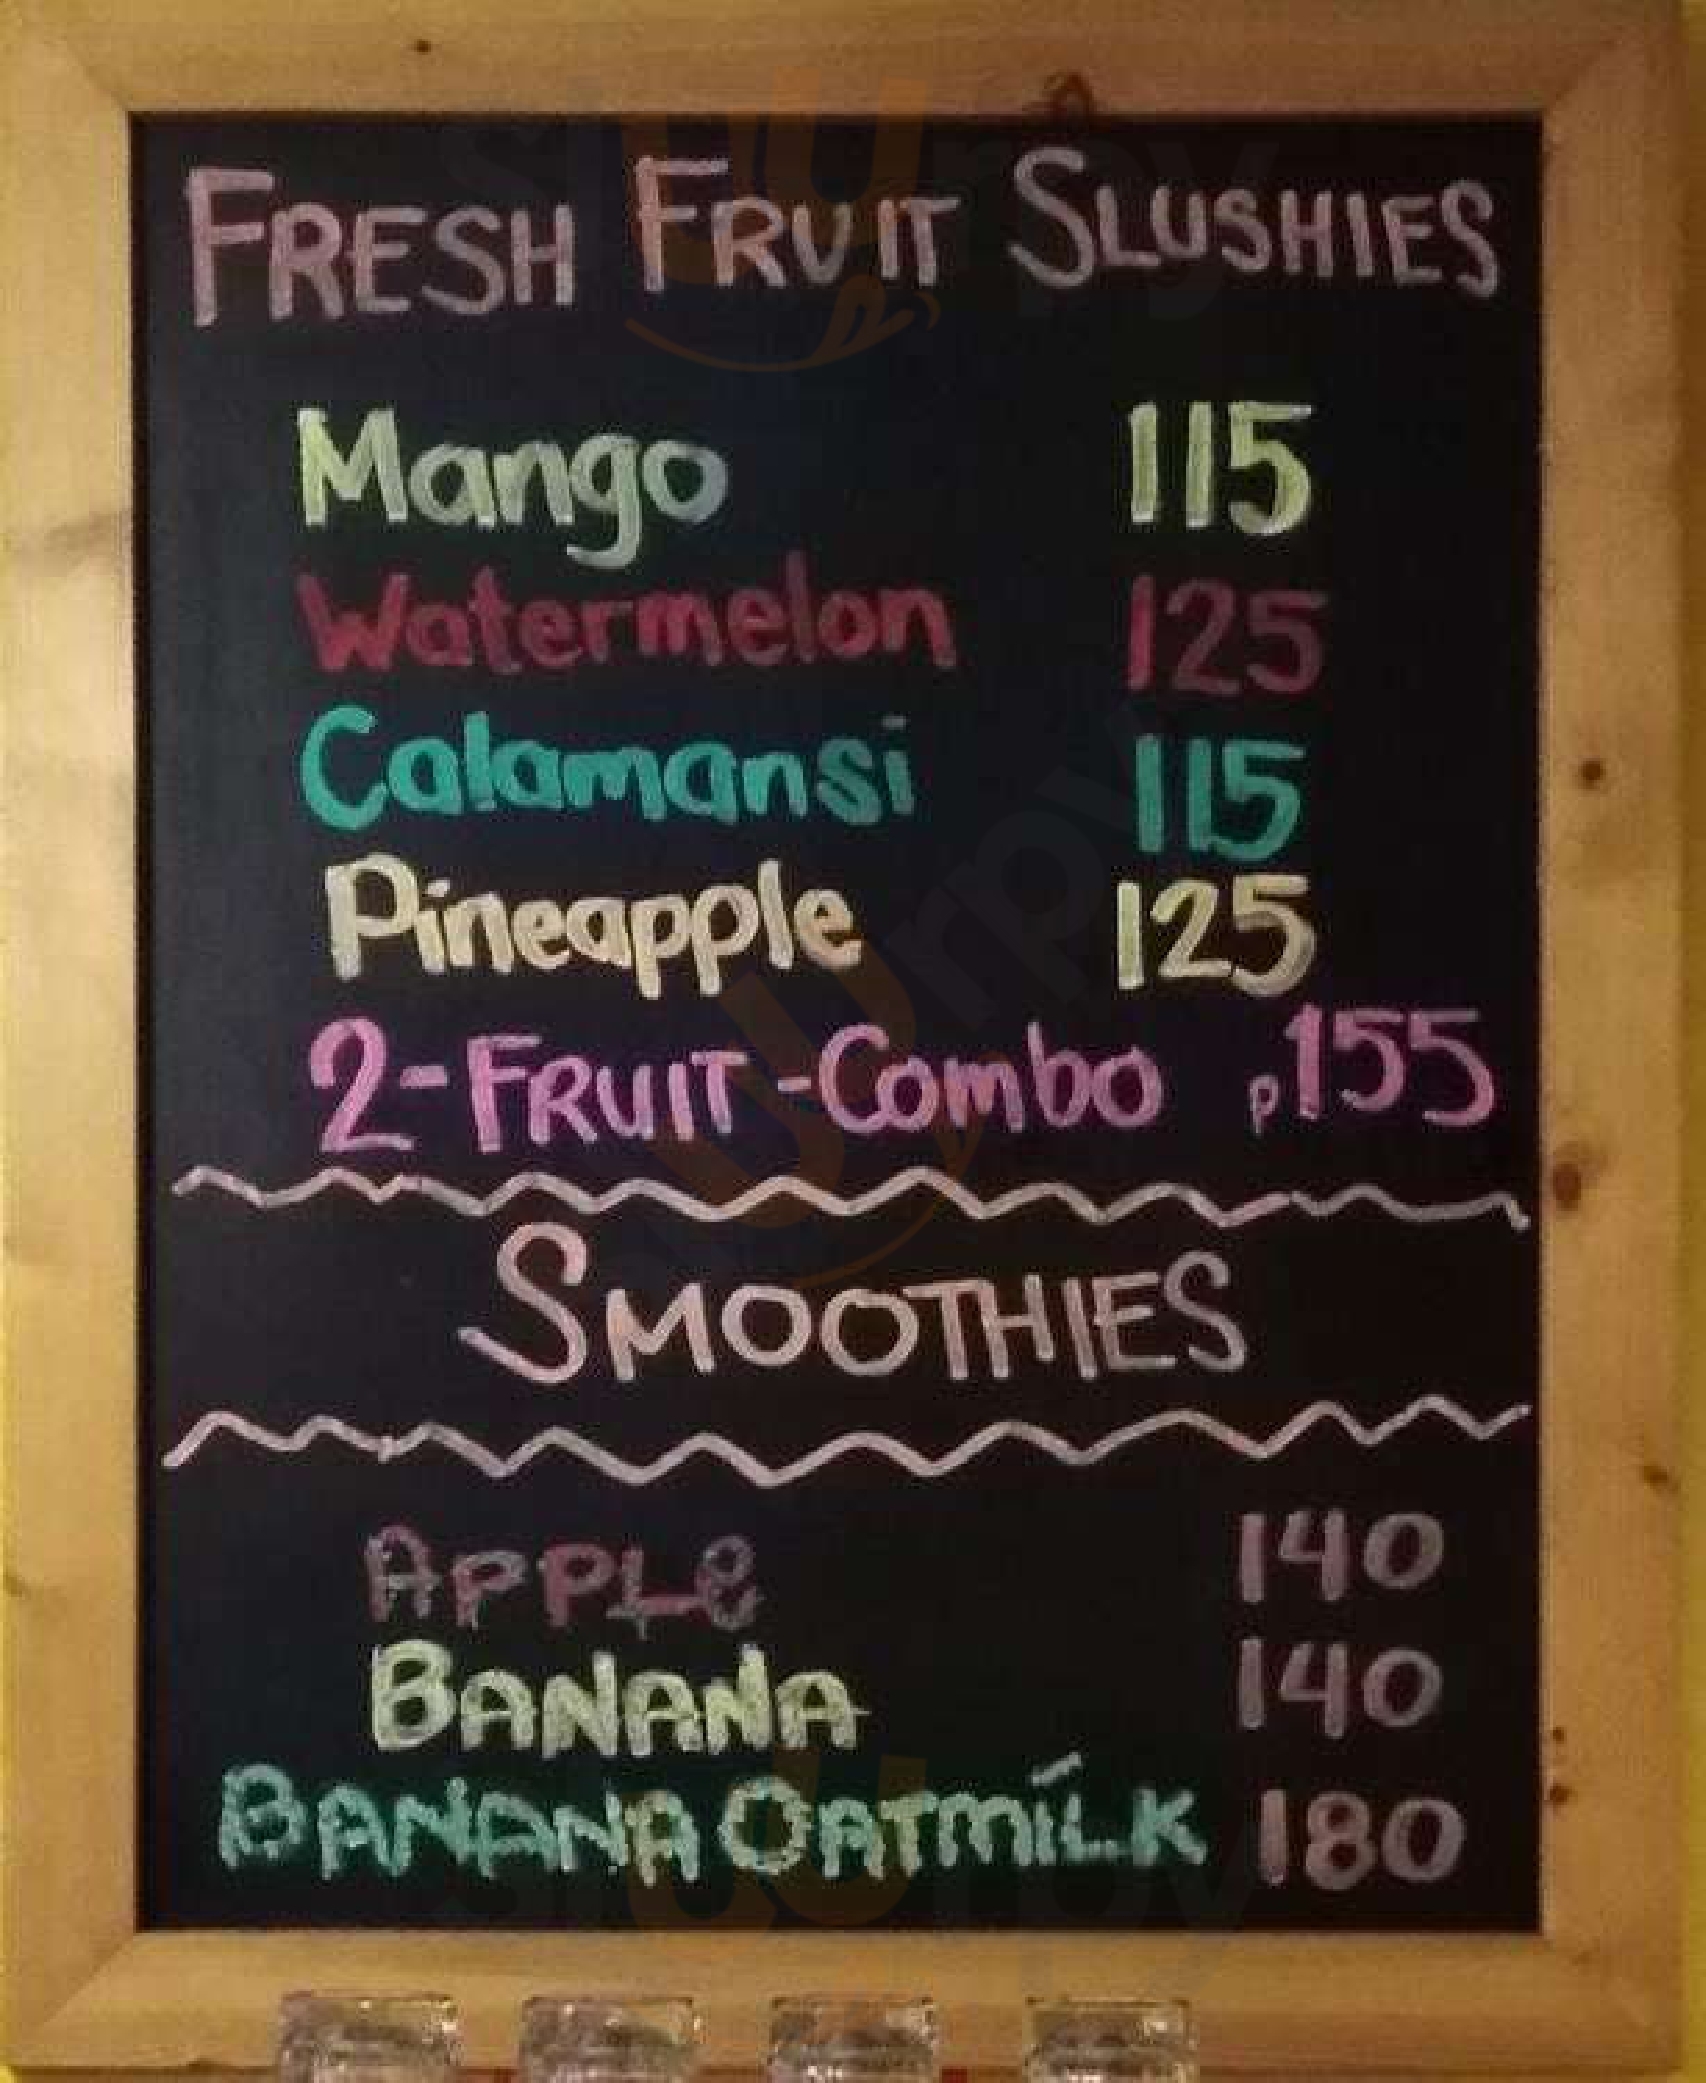 FRESH FRUIT SLUSHIES
Mango 115
Watermelon 125
Calamansi 115
Pineapple 125
2-FRUIT-Combo p155
SMOOTHIES
APPLE 140
BANANA 140
BANANA OATMILK 180